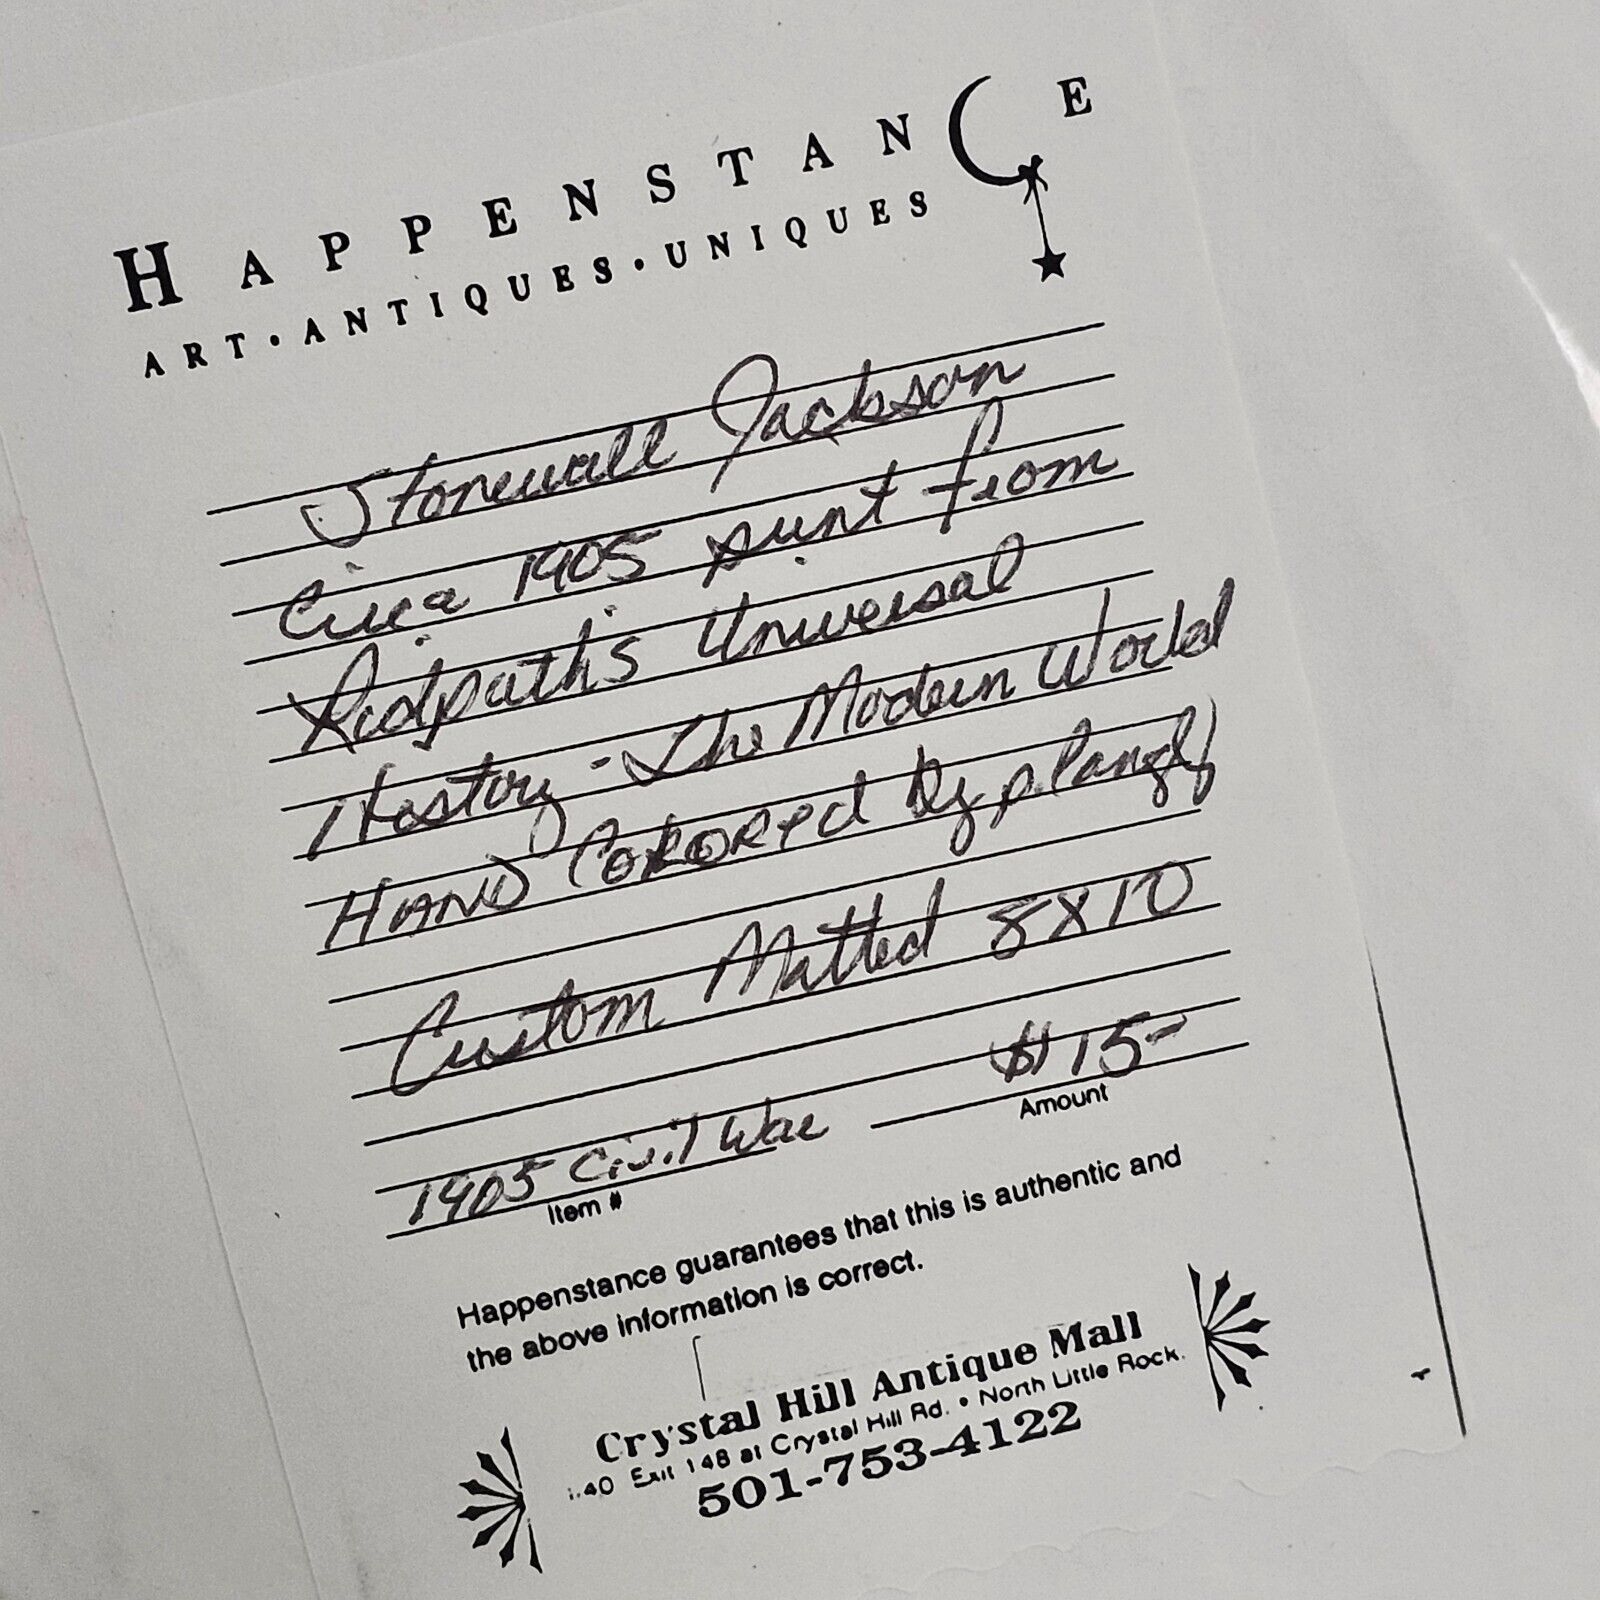 HAPPENSTANCE
ART • ANTIQUES • UNIQUES
Stonewall Jackson
Circa 1905 print from
Ridpath's Universal
History - The Modern World
HAND COLORED by
Custom Matted 8X10
$15-
Amount
1905 Civil War
Item #
Happenstance guarantees that this is authentic and
the above information is correct.
Crystal Hill Antique Mall
I-40 Exit 148 at Crystal Hill Rd. • North Little Rock.
501-753-4122